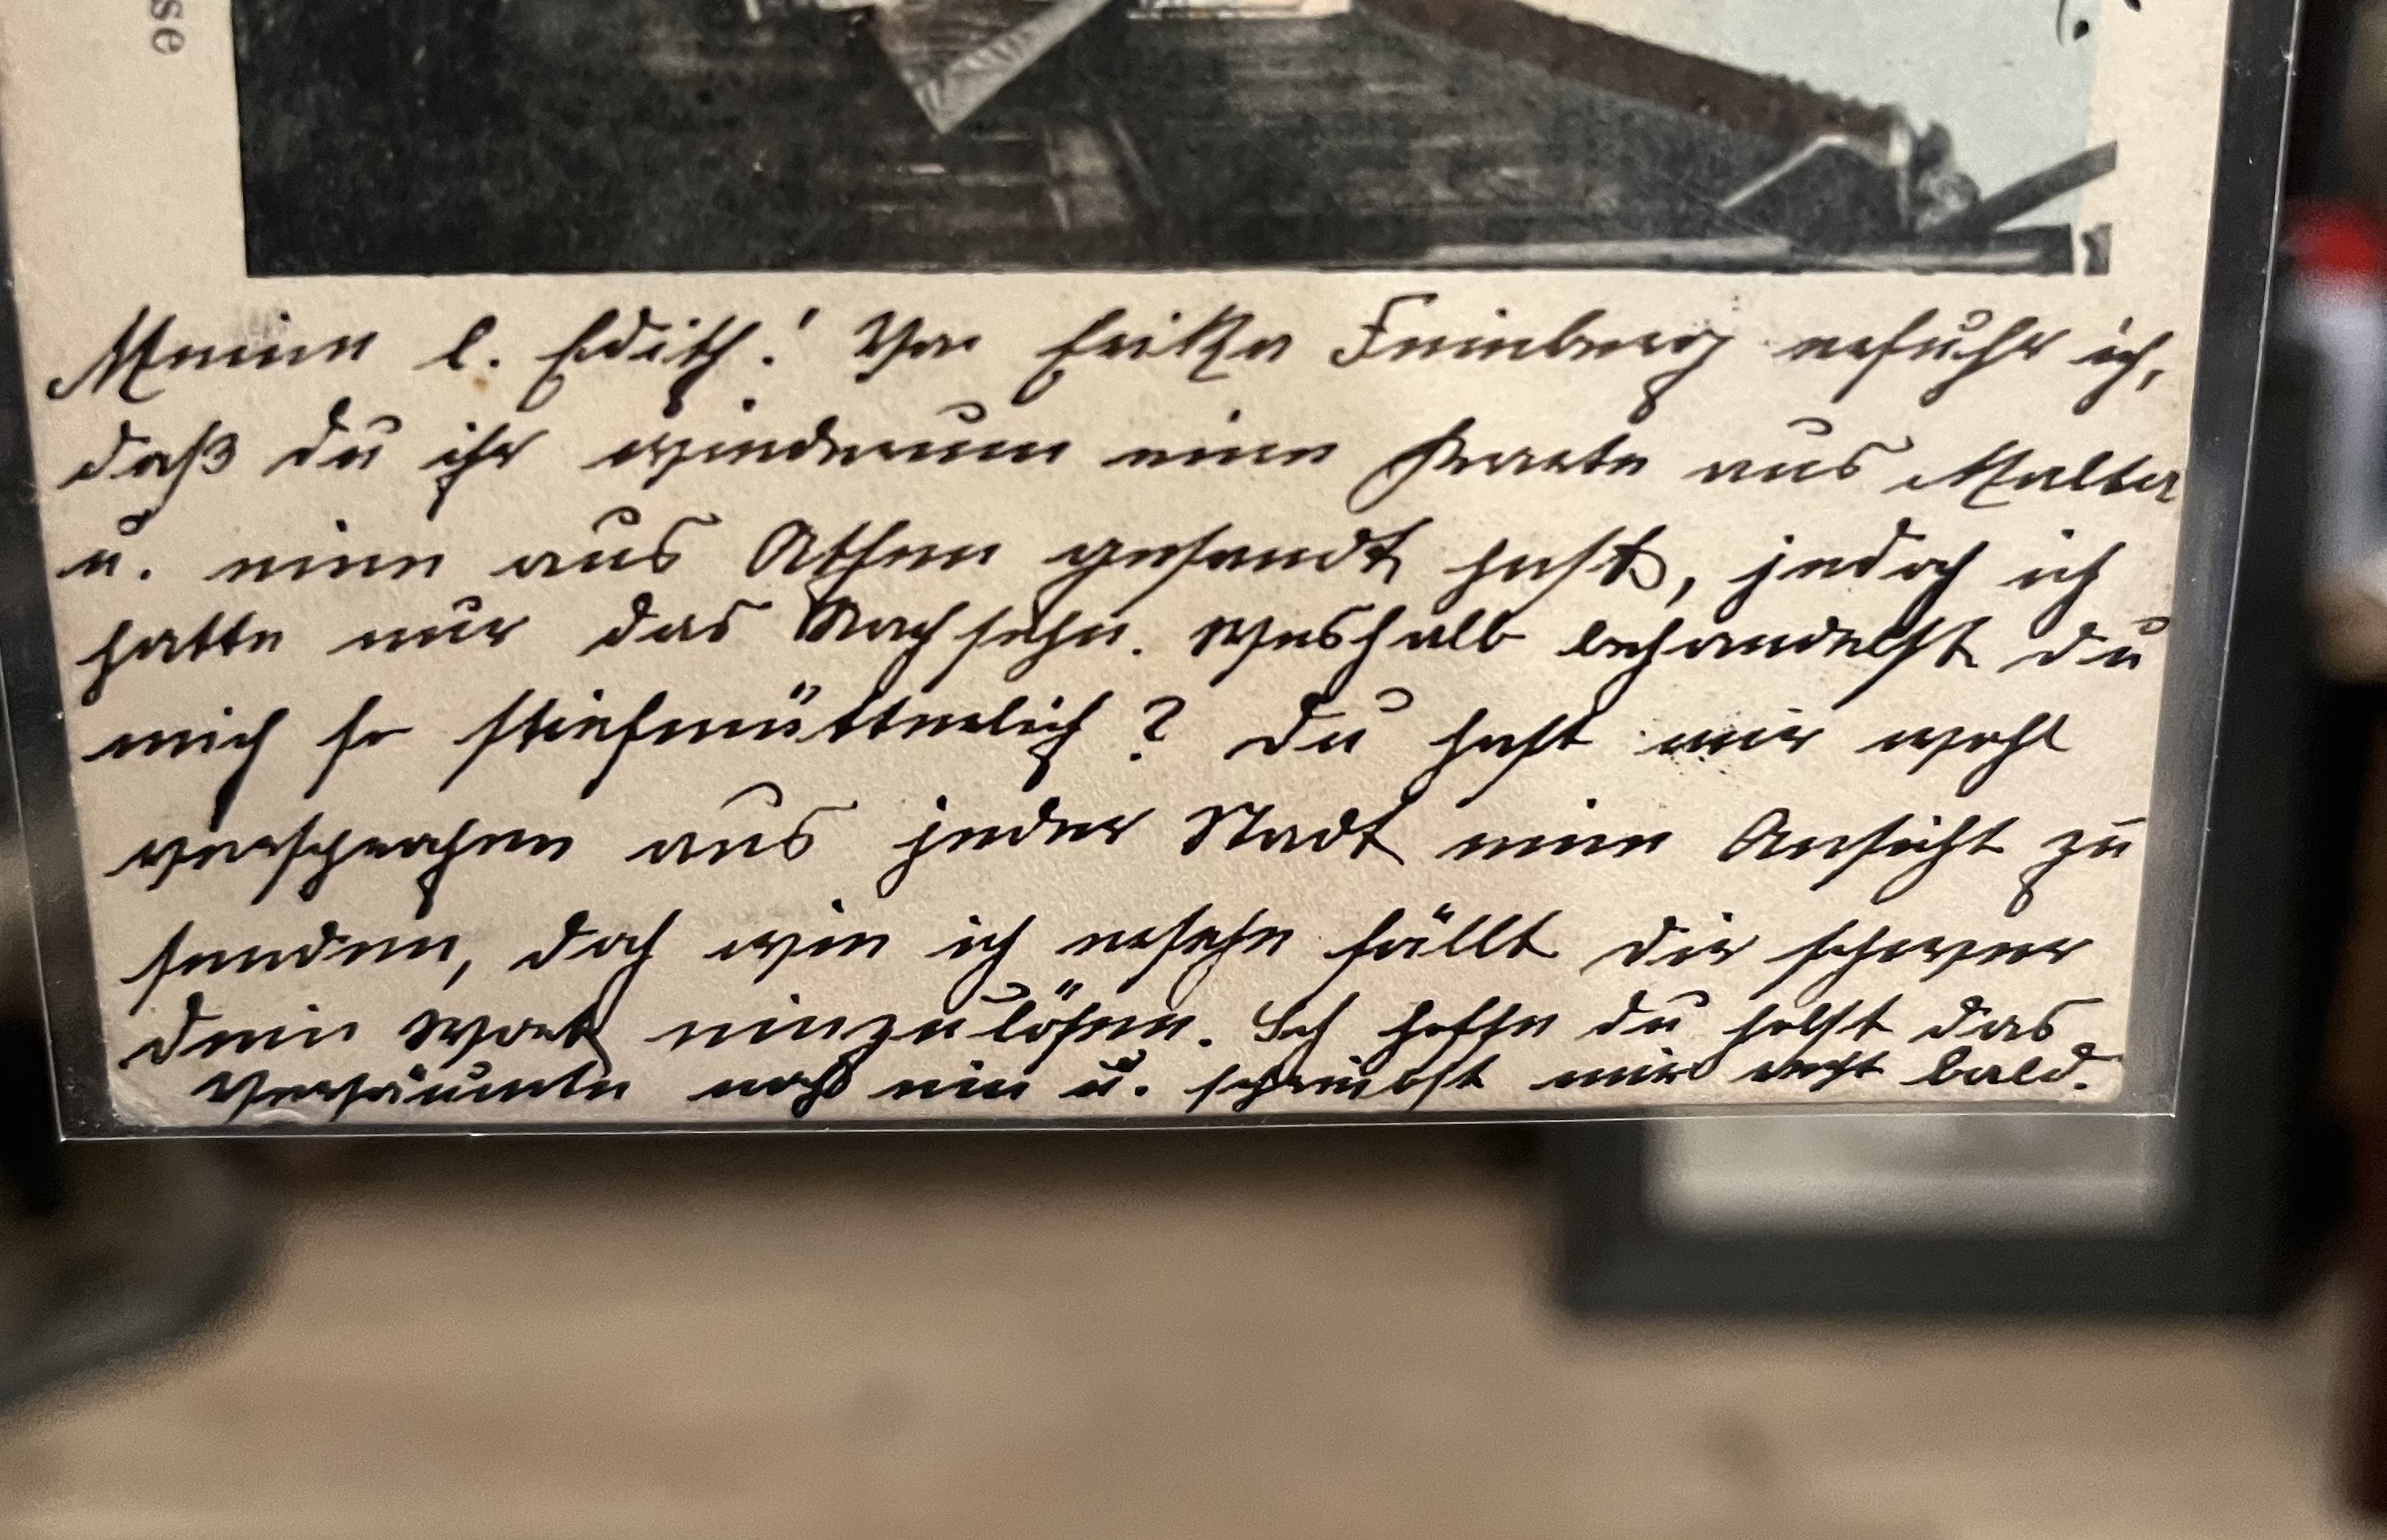 se
Meine l. Edith! Von Erika Feinberg erfuhr ich,
daß du ihr wiederum eine Karte aus Malta
u. eine aus Athen gesandt hast, jedoch ich
hatte nur das Nachsehn. Weshalb behandelst du
mich so stiefmütterlich? Du hast mir wohl
versprochen aus jeder Stadt eine Ansicht zu
senden, doch wie ich ersehe fällt dir schwer
dein Wort einzulösen. Ich hoffe du holst das
Versäumte noch ein u. schreibst mir recht bald.